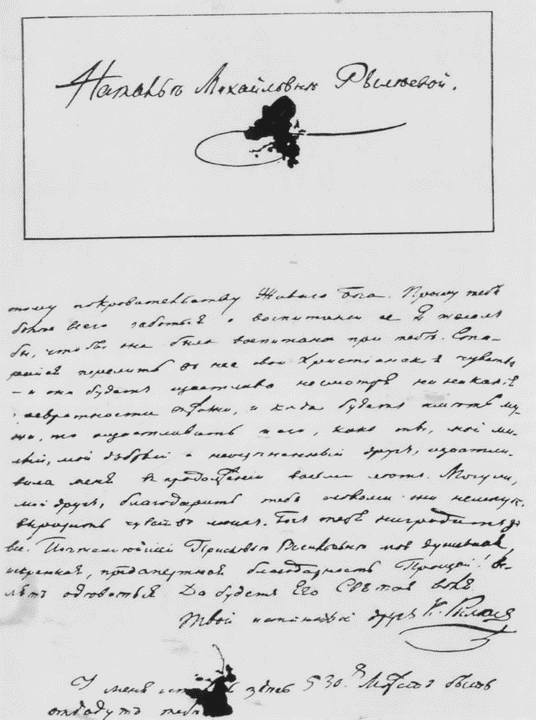 Натальѣ Михайловнѣ Рылѣевой.
тому покровительству Живаго Бога. Прошу тебя
болѣе всего заботься о воспитаніи ее. Я желалъ
бы, чтобы она была воспитана при тебѣ. Ста-
райся перелить въ нее свои Христіанскія чувства
— и она будетъ щастлива несмотря ни на какія
превратности жизни, и когда будетъ имѣть му-
жа, то ощастливитъ и его, какъ ты, мой ми-
лый, мой добрый и неоцѣненный другъ, ощастли-
вила меня въ продолженіи восьми лѣтъ. Могу ли,
мой другъ, благодарить тебя словами: они не могутъ
выразить чувствъ моихъ. Богъ тебя наградитъ за
все. Почтеннѣйшей Прасковьѣ Васильевнѣ моя душевная,
искренняя, предсмертная благодарность. Прощай! Ве-
лятъ одѣваться. Да будетъ Его Святая воля.
Твой истинный другъ К. Рылѣевъ
У меня здѣсь 530 р. Можетъ быть
отдадутъ тебѣ